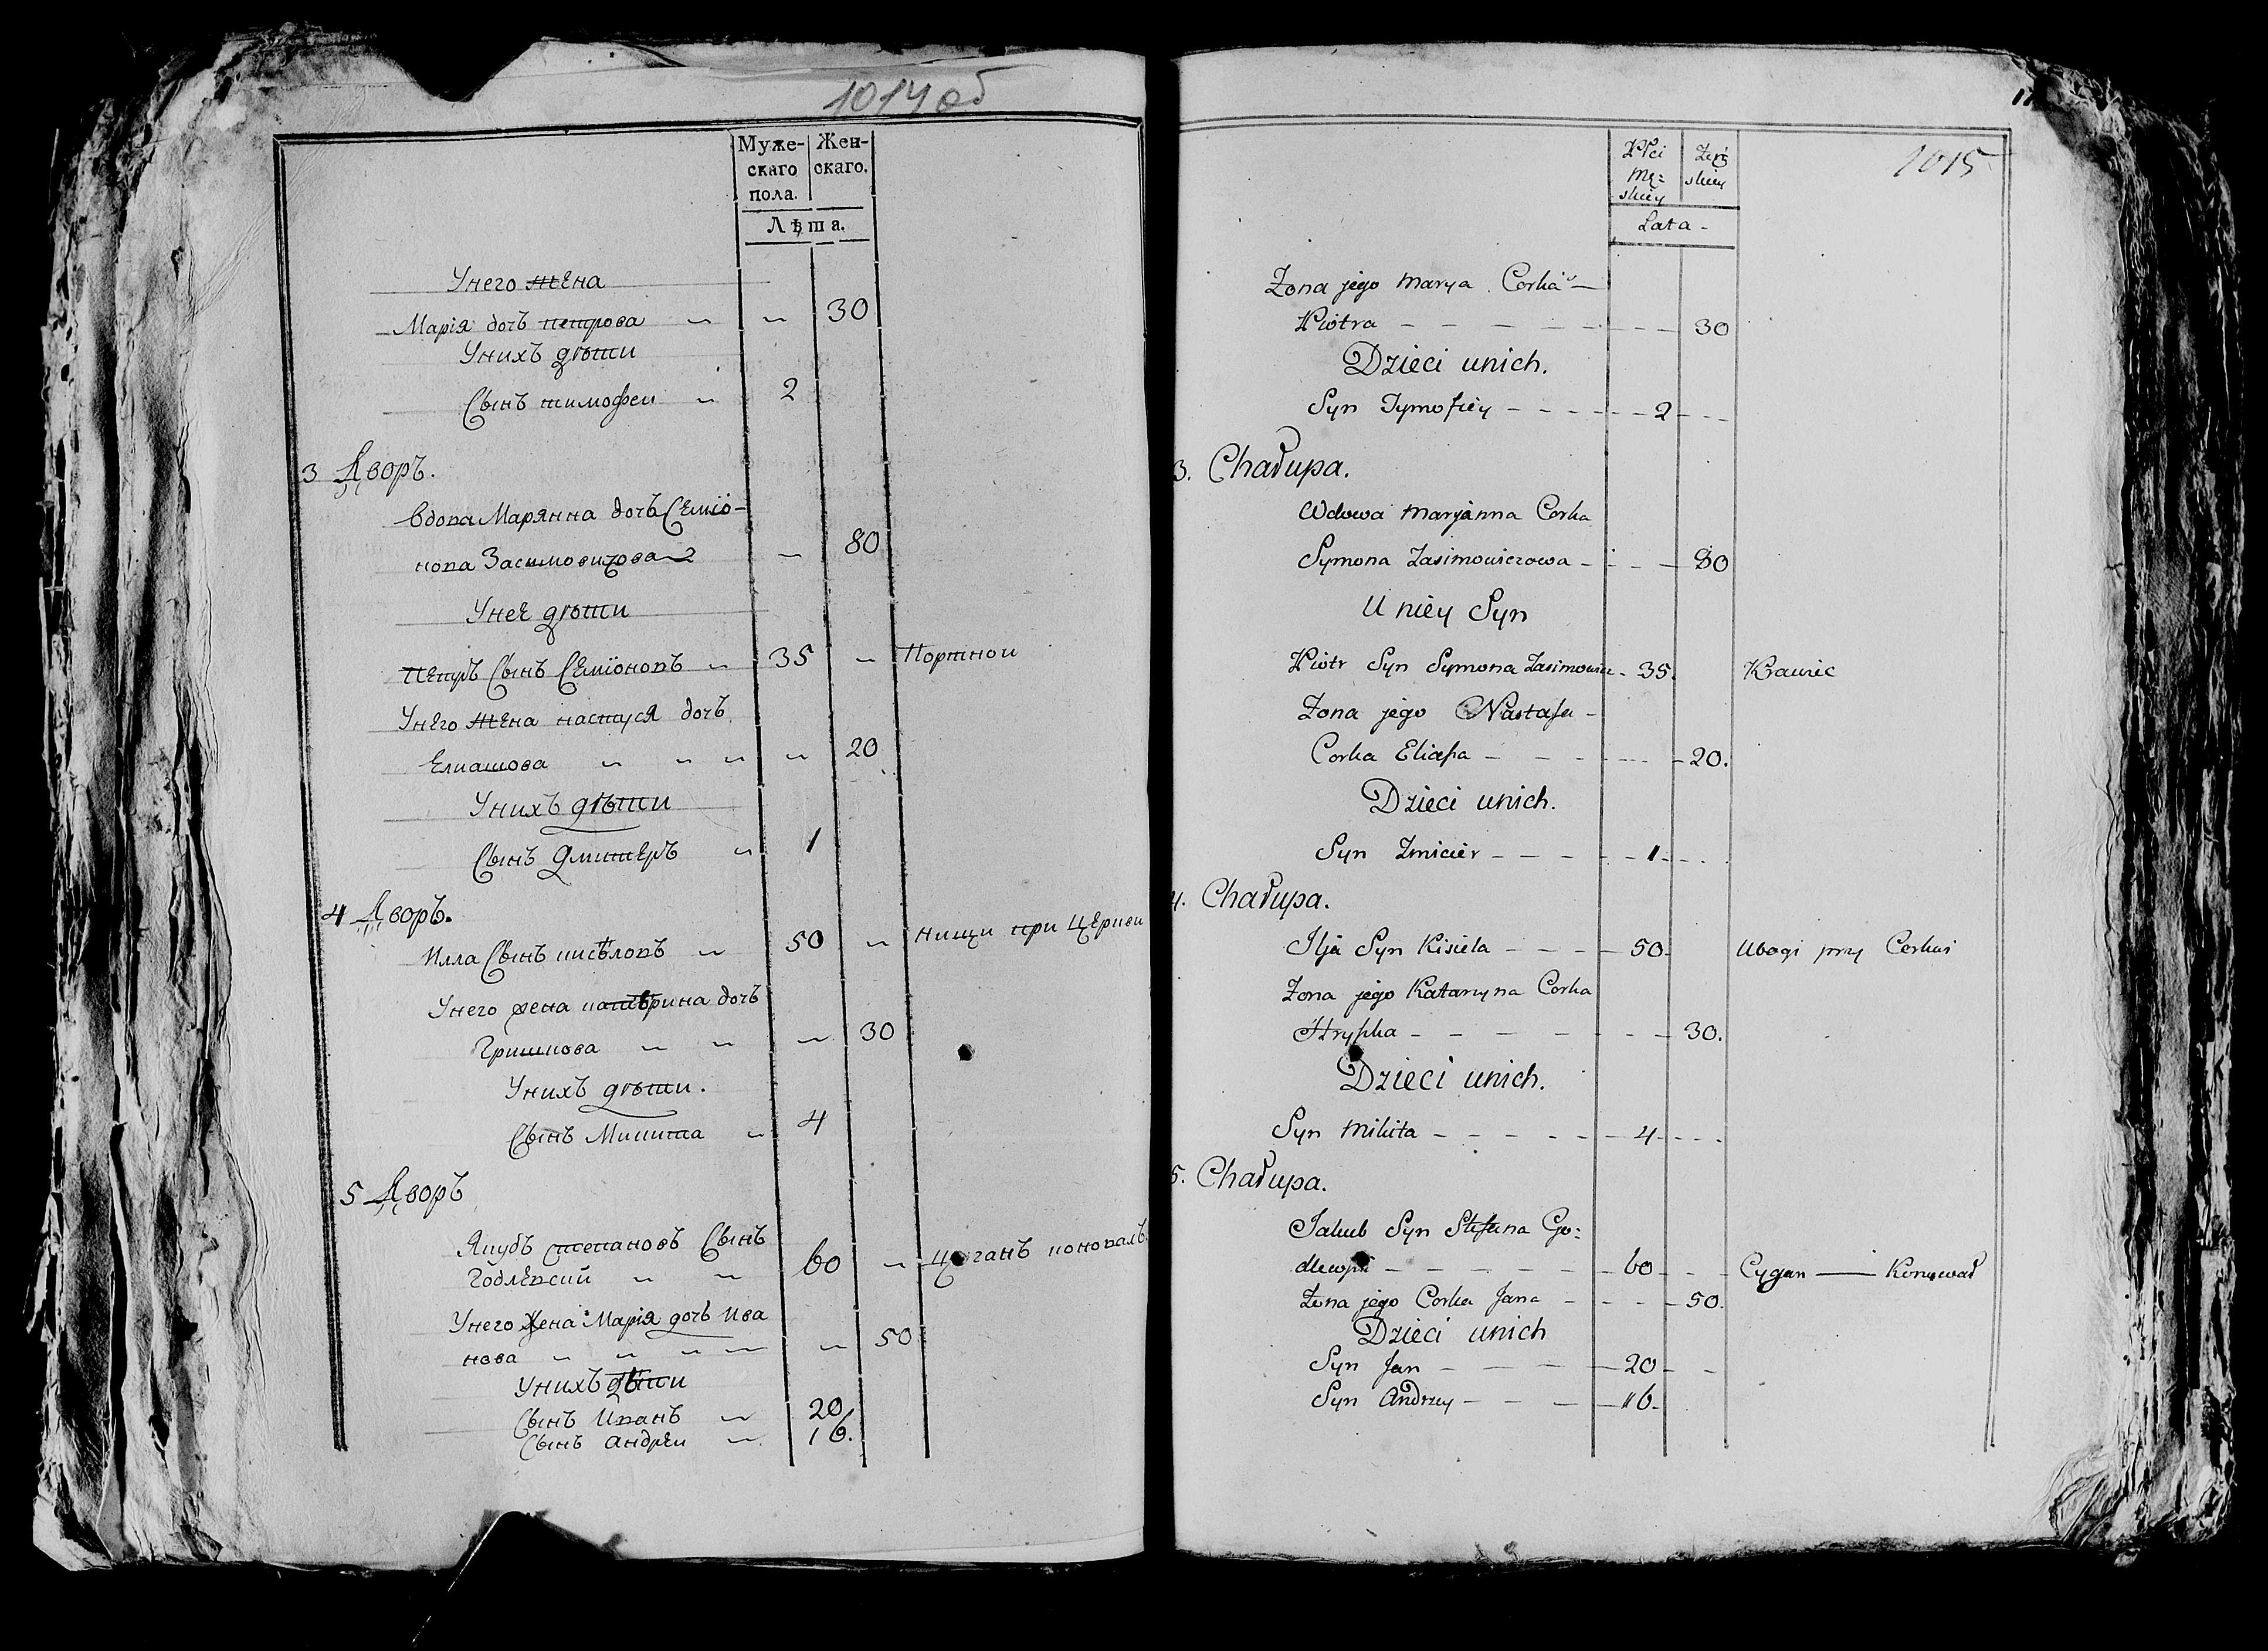 1014 об
Муже-
скаго
пола.
Жен-
скаго.
Лѣта.
Унего жена
Марія дочъ петрова 30
Унихъ дѣти
Сынъ тимофеи 2
3 Дворъ.
Вдова Марянна дочъ Семіо-
нова Засимовичова 80
Унее дѣти
Петръ Сынъ Семіоновъ 35 Портнои
Унего Жена настуся дочъ
Елиашова 20
Унихъ дѣти
Сынъ Дмитеръ 1
4 Дворъ.
Илла Сынъ кисѣловъ 50 нищи при Церкви
Унего жена катерина дочъ
Гришкова 30
Унихъ дѣти.
Сынъ Микита 4
5 Дворъ
Якубъ степановъ Сынъ
Годлевскии 60 Цыганъ коновалъ
Унего Жена Марія дочъ Ива
нова 50
Унихъ дѣти
Сынъ Иванъ 20
Сынъ андреи 16.
1015
Płci
Mę=
skiey
Żeń
skiey
Lata
Żona jego Marya Corka
Piotra 30
Dzieci unich.
Syn Tymofiey 2
3. Chałupa.
Wdowa Maryanna Corka
Symona Zasimowiczowa 80
U niey Syn
Piotr Syn Symona Zasimowicz 35. Krawiec
Żona jego Nastasia
Corka Eliasza 20.
Dzieci unich.
Syn Zmicier 1
4. Chałupa.
Ilja Syn Kisiela 50. Ubogi przy Cerkwi
Żona jego Katarzyna Corka
Hryszka 30.
Dzieci unich.
Syn Mikita 4
5. Chałupa.
Jakub Syn Stefana Go=
dlewski 60 Cygan — Konował
Żona jego Corka Jana 50.
Dzieci unich
Syn Jan 20
Syn Andrzey 16.